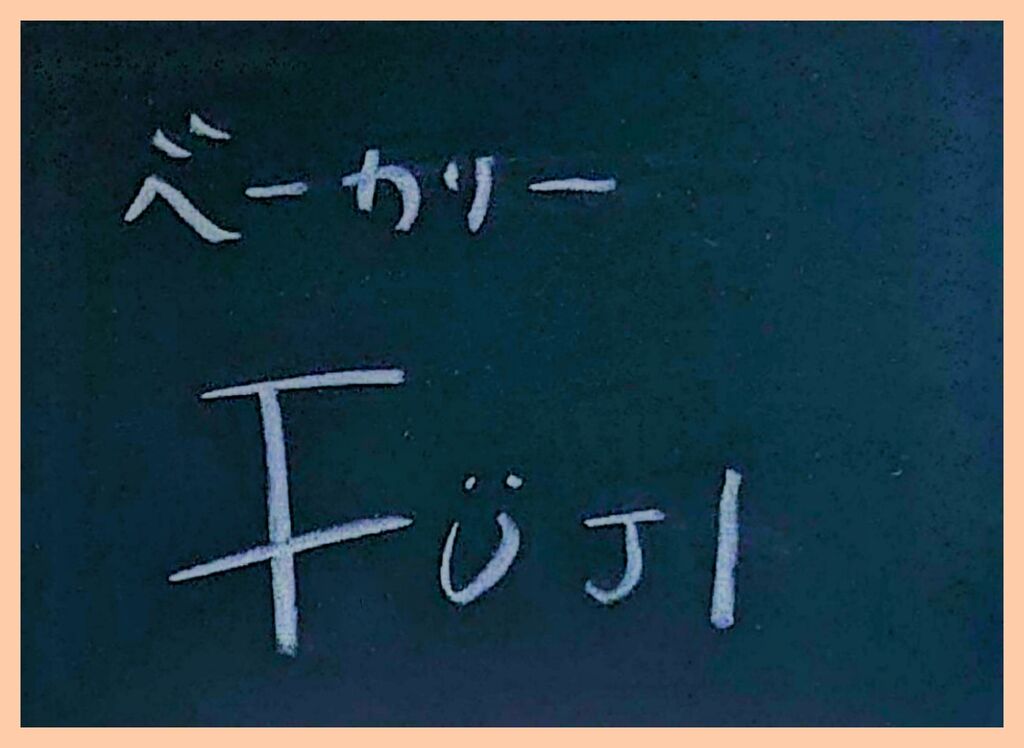 ベーカリー
FÜJI